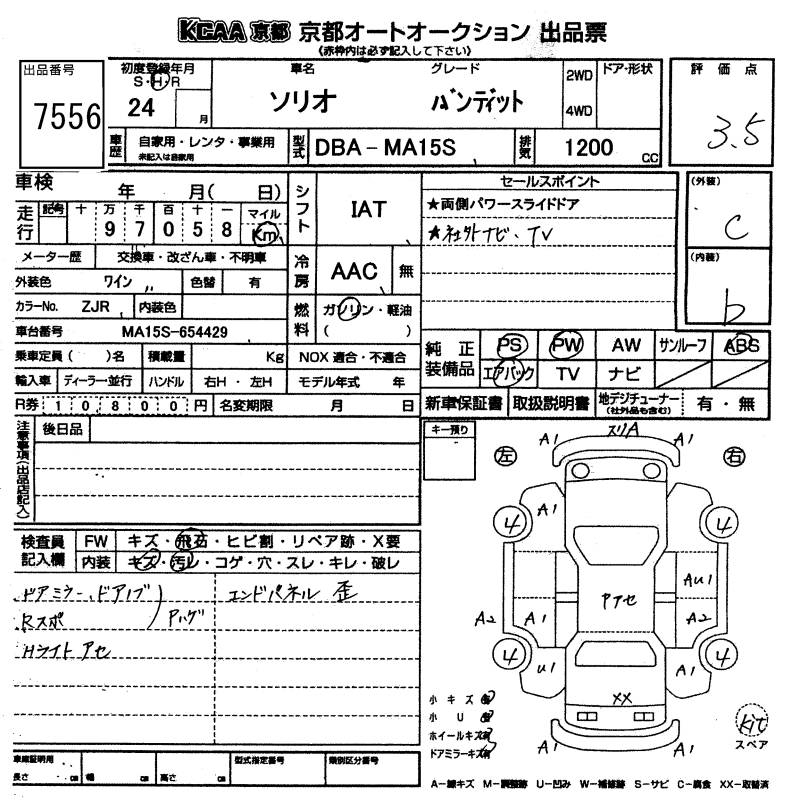 KCAA 京都 京都オートオークション 出品票
《赤枠内は必ず記入して下さい》
出品番号
7556
初度登録年月
S・H・R
24 月
車名
ソリオ
グレード
バンディット
2WD
4WD
ドア・形状
評価点
3.5
車歴
自家用・レンタ・事業用
未記入は自家用
型式
DBA-MA15S
排気
1200 CC
車検
年 月( 日)
走行
記号 十 万 千 百 十 一 マイル
9 7 0 5 8 Km
メーター歴
交換車・改ざん車・不明車
外装色
ワイン
色替 有
カラーNo.
ZJR
内装色
車台番号
MA15S-654429
乗車定員( )名
積載量 Kg
NOX 適合・不適合
輸入車
ディーラー・並行
ハンドル
右H・左H
モデル年式 年
R券
10800円
名変期限 月 日
シフト
IAT
冷房
AAC 無
燃料
ガソリン・軽油
( )
セールスポイント
★両側パワースライドドア
★社外ナビ、TV
(外装)
C
(内装)
b
純正装備品
PS PW AW サンルーフ ABS
エアバック TV ナビ
新車保証書 取扱説明書
地デジチューナー
(社外品も含む)
有・無
注意事項(出品店記入)
後日品
キー預り
検査員記入欄
FW
キズ・飛石・ヒビ割・リペア跡・X要
内装
キズ・汚レ・コゲ・穴・スレ・キレ・破レ
ドアミラー、ドアノブ
Rスポ
Aハゲ
Hライト アセ
エンドパネル 歪
左
右
A1 スリA A1
4 A1 4
AU1
アセ
A2 A1 A2
4 U1 A1 4
XX
A1 A1
小キズ有
小U有
ホイールキズ有
ドアミラーキズ有
kit
スペア
車庫証明用
長さ cm 幅 cm 高さ cm
型式指定番号
類別区分番号
A-線キズ M-調整跡 U-凹み W-補修跡 S-サビ C-腐食 XX-取替済